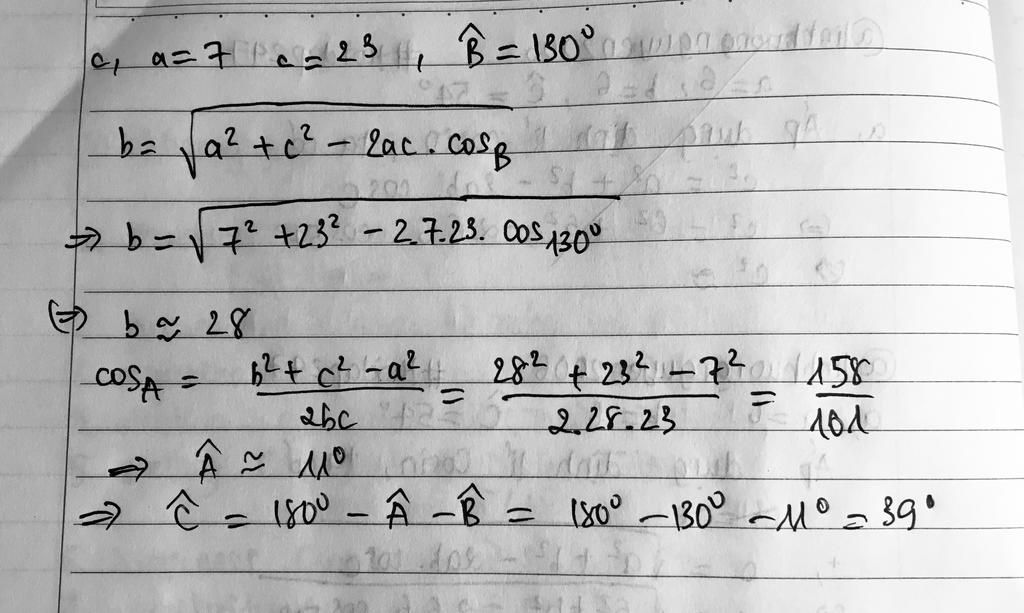 c, a = 7 c = 23 , B̂ = 130°
b = √(a² + c² − 2ac . cos B)
⇒ b = √(7² + 23² − 2.7.23. cos 130°)
(⇒) b ≈ 28
cos A = (b² + c² − a²)/(2bc) = (28² + 23² − 7²)/(2.28.23) = 158/161
⇒ Â ≈ 11°
⇒ Ĉ = 180° − Â − B̂ = 180° − 130° − 11° = 39°